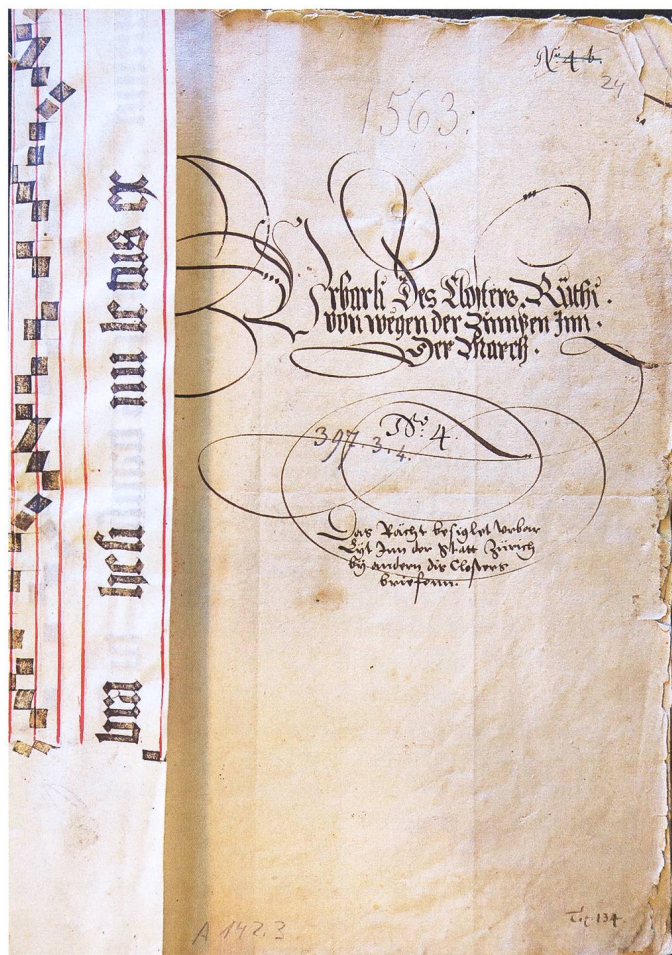 No. 4 b.
24
1563.
Urbarli Des Closters Rüthi.
von wegen der Zinnßen Inn.
Der March.
No. 4.
397.3.4.
Das Rächt besiglet Urbar
Lyt Inn der Statt Zürich
by andern dis Closters
briefenn.
A 142.3
134.